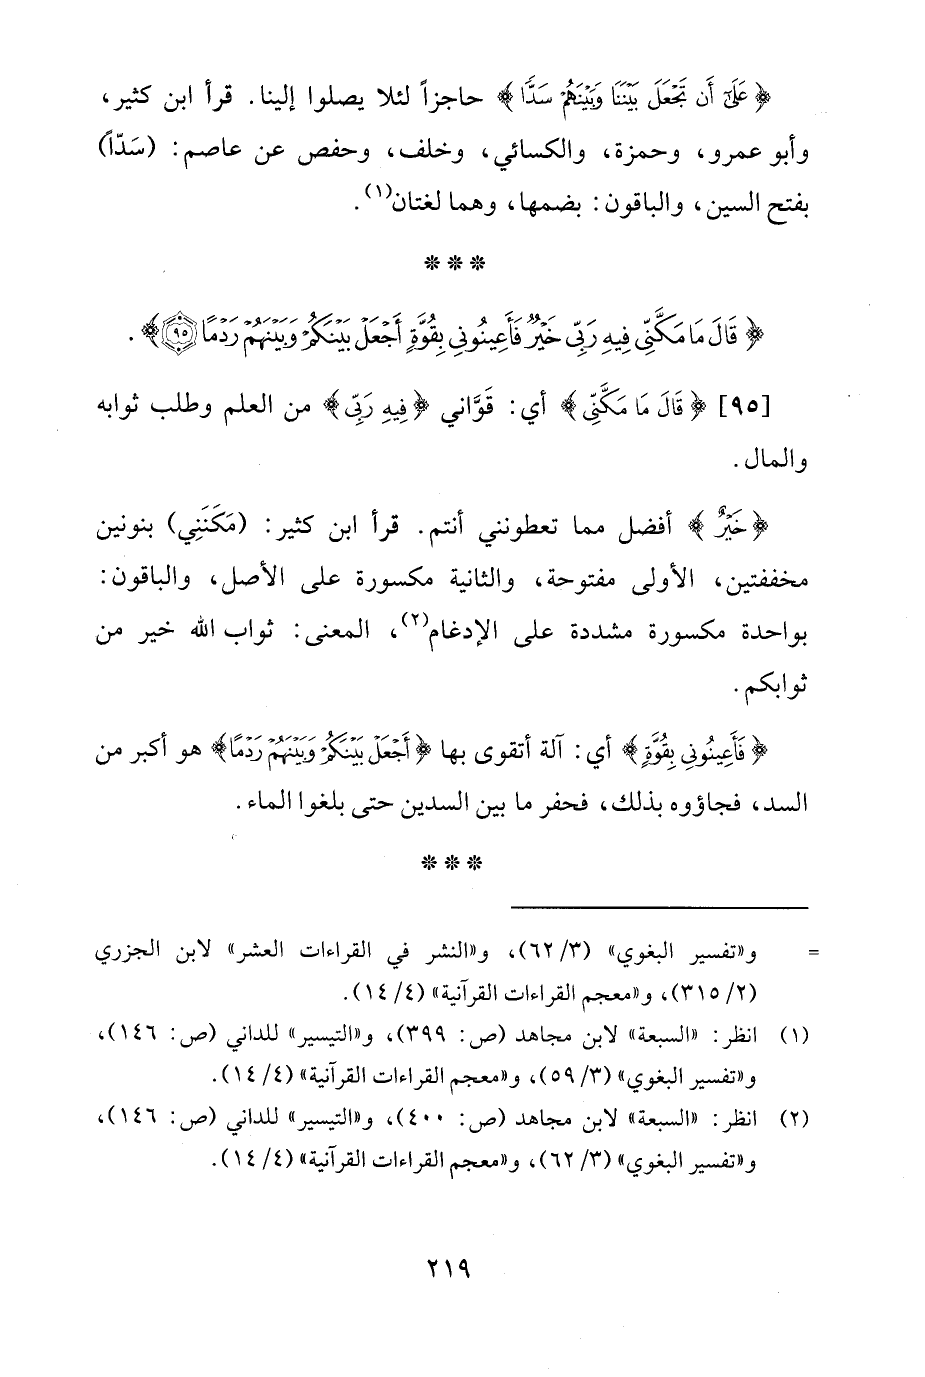 ﴿ عَلَىٰٓ أَن تَجْعَلَ بَيْنَنَا وَبَيْنَهُمْ سَدًّا ﴾ حاجزاً لئلا يصلوا إلينا. قرأ ابن كثير،
وأبو عمرو، وحمزة، والكسائي، وخلف، وحفص عن عاصم: (سَدّاً)
بفتح السين، والباقون: بضمها، وهما لغتان(١).
* * *
﴿ قَالَ مَا مَكَّنِّي فِيهِ رَبِّي خَيْرٌ فَأَعِينُونِي بِقُوَّةٍ أَجْعَلْ بَيْنَكُمْ وَبَيْنَهُمْ رَدْمًا ٩٥ ﴾.
[٩٥] ﴿ قَالَ مَا مَكَّنِّي ﴾ أي: قَوَّاني ﴿ فِيهِ رَبِّي ﴾ من العلم وطلب ثوابه
والمال.
﴿ خَيْرٌ ﴾ أفضل مما تعطونني أنتم. قرأ ابن كثير: (مَكَنَنِي) بنونين
مخففتين، الأولى مفتوحة، والثانية مكسورة على الأصل، والباقون:
بواحدة مكسورة مشددة على الإدغام(٢)، المعنى: ثواب الله خير من
ثوابكم.
﴿ فَأَعِينُونِي بِقُوَّةٍ ﴾ أي: آلة أتقوى بها ﴿ أَجْعَلْ بَيْنَكُمْ وَبَيْنَهُمْ رَدْمًا ﴾ هو أكبر من
السد، فجاؤوه بذلك، فحفر ما بين السدين حتى بلغوا الماء.
* * *
= و«تفسير البغوي» (٣/ ٦٢)، و«النشر في القراءات العشر» لابن الجزري
(٢/ ٣١٥)، و«معجم القراءات القرآنية» (٤/ ١٤).
(١) انظر: «السبعة» لابن مجاهد (ص: ٣٩٩)، و«التيسير» للداني (ص: ١٤٦)،
و«تفسير البغوي» (٣/ ٥٩)، و«معجم القراءات القرآنية» (٤/ ١٤).
(٢) انظر: «السبعة» لابن مجاهد (ص: ٤٠٠)، و«التيسير» للداني (ص: ١٤٦)،
و«تفسير البغوي» (٣/ ٦٢)، و«معجم القراءات القرآنية» (٤/ ١٤).
٢١٩